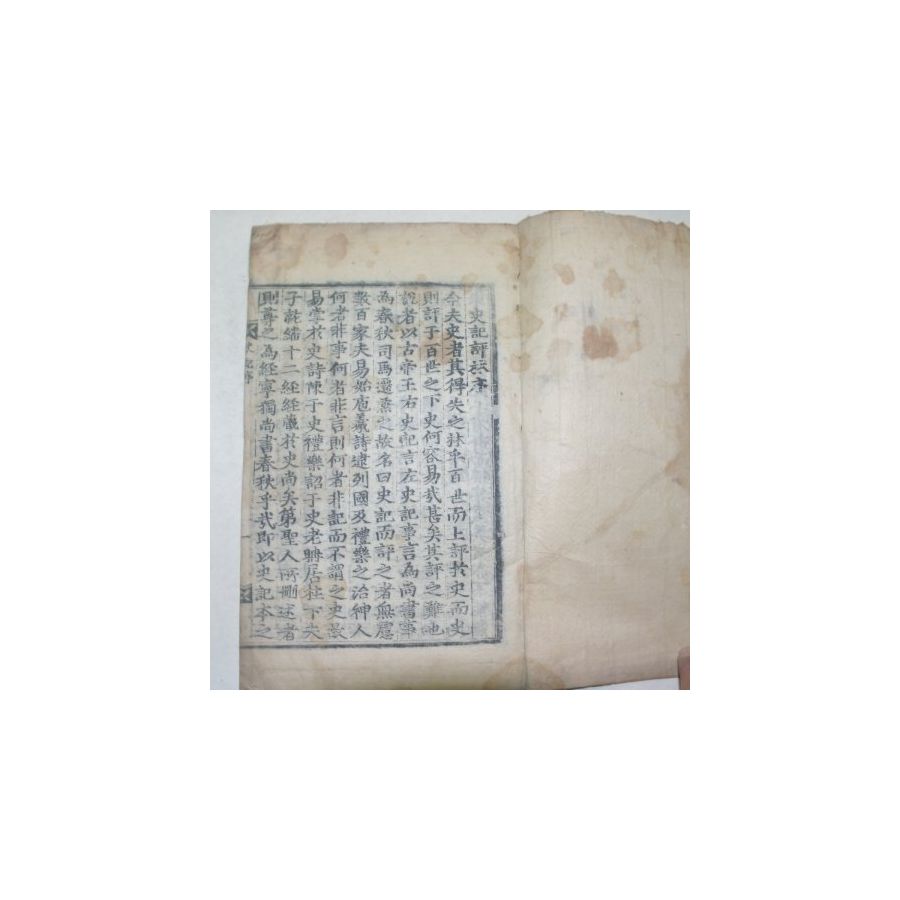 史記評林序
今夫史者其得失之林乎百世而上評扵史而史
則評于百世之下史何容易哉甚矣其評之難也
說者以古帝王右史記言左史記事言為尚書事
為春秋司馬遷兼之故名曰史記而評之者無慮
數百家夫易始庖羲詩逮列國及禮樂之治神人
何者非事何者非言則何者非記而不謂之史故
易掌扵史詩陳于史禮樂詔于史老聃居柱下夫
子繙十二經經藏扵史尚矣第聖人所刪述者
則尊之為經寧獨尚書春秋乎哉即以史記本之